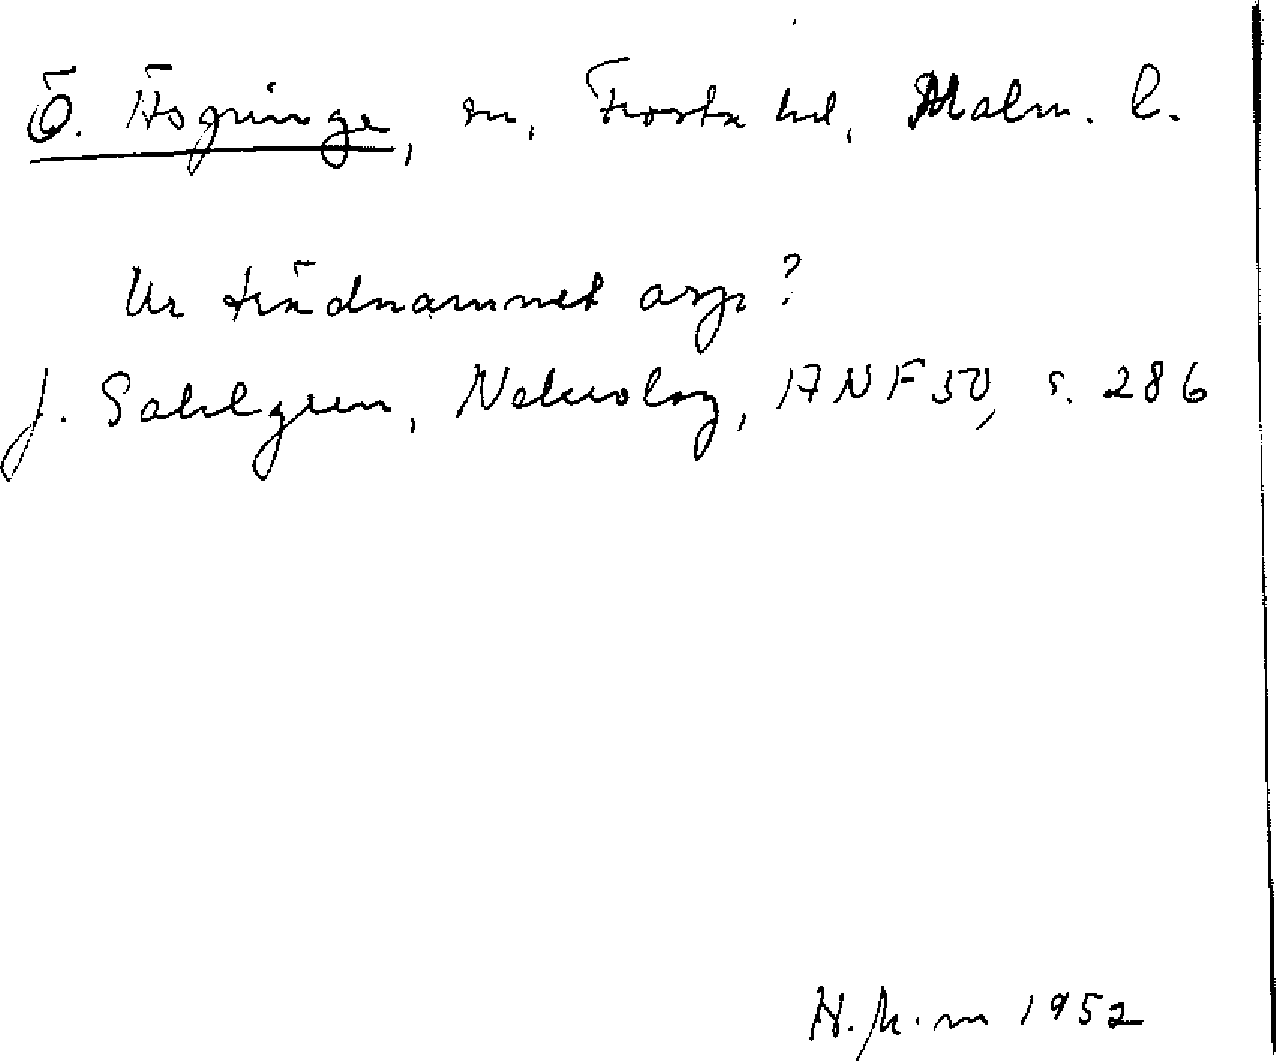 Ö. Äspinge, sn, Frosta hd, Malm. l.
Ur trädnamnet asp?
J. Sahlgren, Nekrolog, ANF 50, s. 286
1952